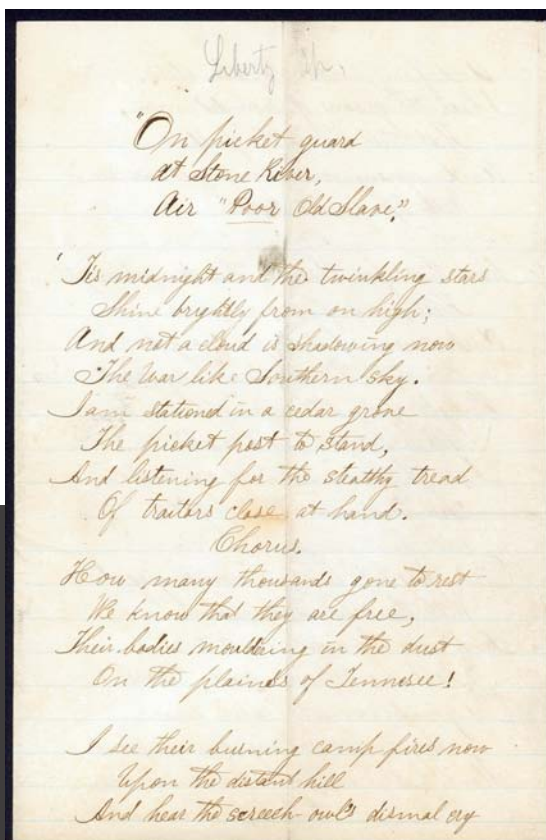 Liberty
"On picket guard
at Stone River,
Air "Poor Old Slave."
'Tis midnight and the twinkling stars
Shine brightly from on high;
And not a cloud is shadowing now
The War like Southern sky.
I am stationed in a cedar grove
The picket post to stand,
And listening for the stealthy tread
Of traitors close at hand.
Chorus.
How many thousands gone to rest
We know that they are free,
Their bodies mouldering in the dust
On the plaines of Tennesee!
I see their burning camp fires now
Upon the distant hill
And hear the screech-owl's dismal cry